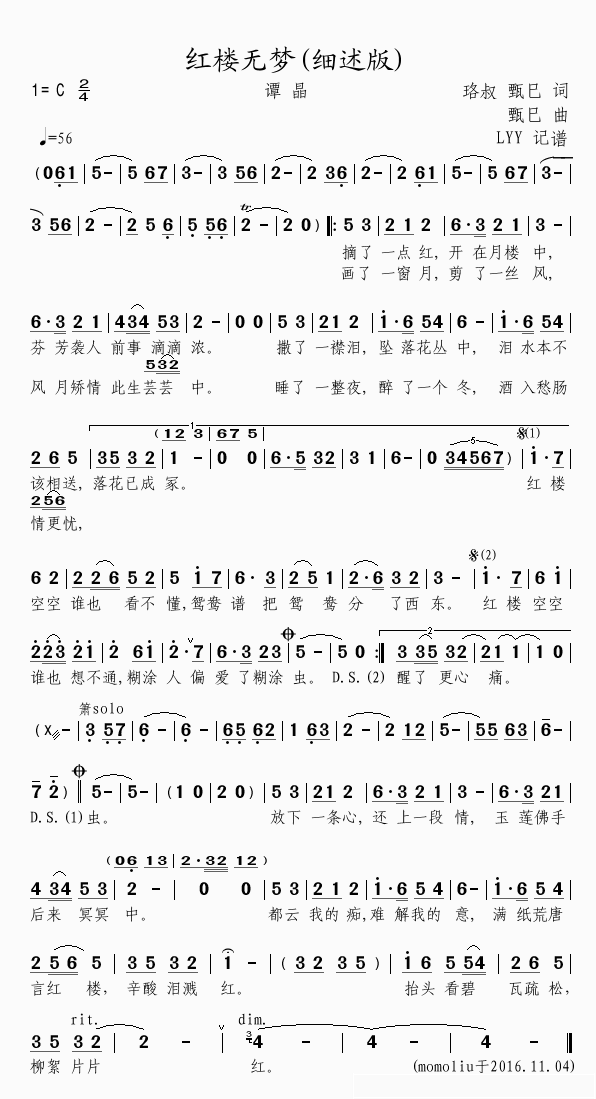 红楼无梦(细述版)
1= C 2/4 谭 晶 珞叔 甄巳 词
甄巳 曲
♩=56 LYY 记谱
(061 | 5- | 5 67 | 3- | 3 56 | 2- | 2 36 | 2- | 2 61 | 5- | 5 67 | 3- |
3 56 | 2 - | 2 5 6 | 5 56 | tr 2 - | 2 0 ) ‖: 5 3 | 2 1 2 | 6·3 2 1 | 3 - |
摘了 一点 红, 开 在月楼 中,
画了 一窗 月, 剪 了一丝 风,
6·3 2 1 | 434 53 | 2 - | 0 0 | 5 3 | 21 2 | i·6 54 | 6 - | i·6 54 |
芬 芳袭人 前事 滴滴 浓。 撒了 一襟泪, 坠 落花丛 中, 泪 水本不
532
风 月矫情 此生芸芸 中。 睡了 一整夜, 醉 了一个 冬, 酒 入愁肠
1 (12 3 | 67 5 |
2 6 5 | 35 3 2 | 1 - | 0 0 | 6·5 32 | 3 1 | 6- | 0 34567 5 ) | 𝄋(1) i·7 |
该相送, 落花已成 冢。 红 楼
256
情更忧,
6 2 | 2 2 6 5 2 | 5 i 7 | 6· 3 | 2 5 1 | 2·6 3 2 | 3 - | 𝄋(2) i· 7 | 6 i |
空空 谁也 看不 懂, 鸳鸯 谱 把 鸳 鸯 分 了西 东。 红 楼 空空
223 2i | 2 6i | 2·7 | 6·3 23 | 𝄌 5 - | 5 0 :‖ 2 3 35 32 | 21 1 | 1 0 |
谁也 想不通, 糊涂 人 偏 爱 了糊涂 虫。 D.S.(2) 醒了 更心 痛。
箫solo
(X - | 3 57 | 6 - | 6 - | 65 62 | 1 63 | 2 - | 2 12 | 5 - | 55 63 | 6- |
7 2 ) ‖ 𝄌 5- | 5- | (1 0 | 2 0 ) | 5 3 | 21 2 | 6·3 21 | 3 - | 6·3 21 |
D.S.(1)虫。 放下 一条心, 还 上一段 情, 玉 莲佛手
(06 13 | 2·32 12 )
4 34 5 3 | 2 - | 0 0 | 5 3 | 2 1 2 | i·6 5 4 | 6- | i·6 5 4 |
后来 冥冥 中。 都云 我的 痴, 难 解我的 意, 满 纸荒唐
2 56 5 | 3 5 3 2 | i - | ( 3 2 3 5 ) | i 6 5 54 | 2 6 5 |
言红 楼, 辛酸 泪溅 红。 抬头 看碧 瓦疏 松,
rit. dim.
3 5 3 2 | 2 - | 2 - | 3 4 - | 4 - | 4 - ‖
柳絮 片片 红。 (momoliu于2016.11.04)